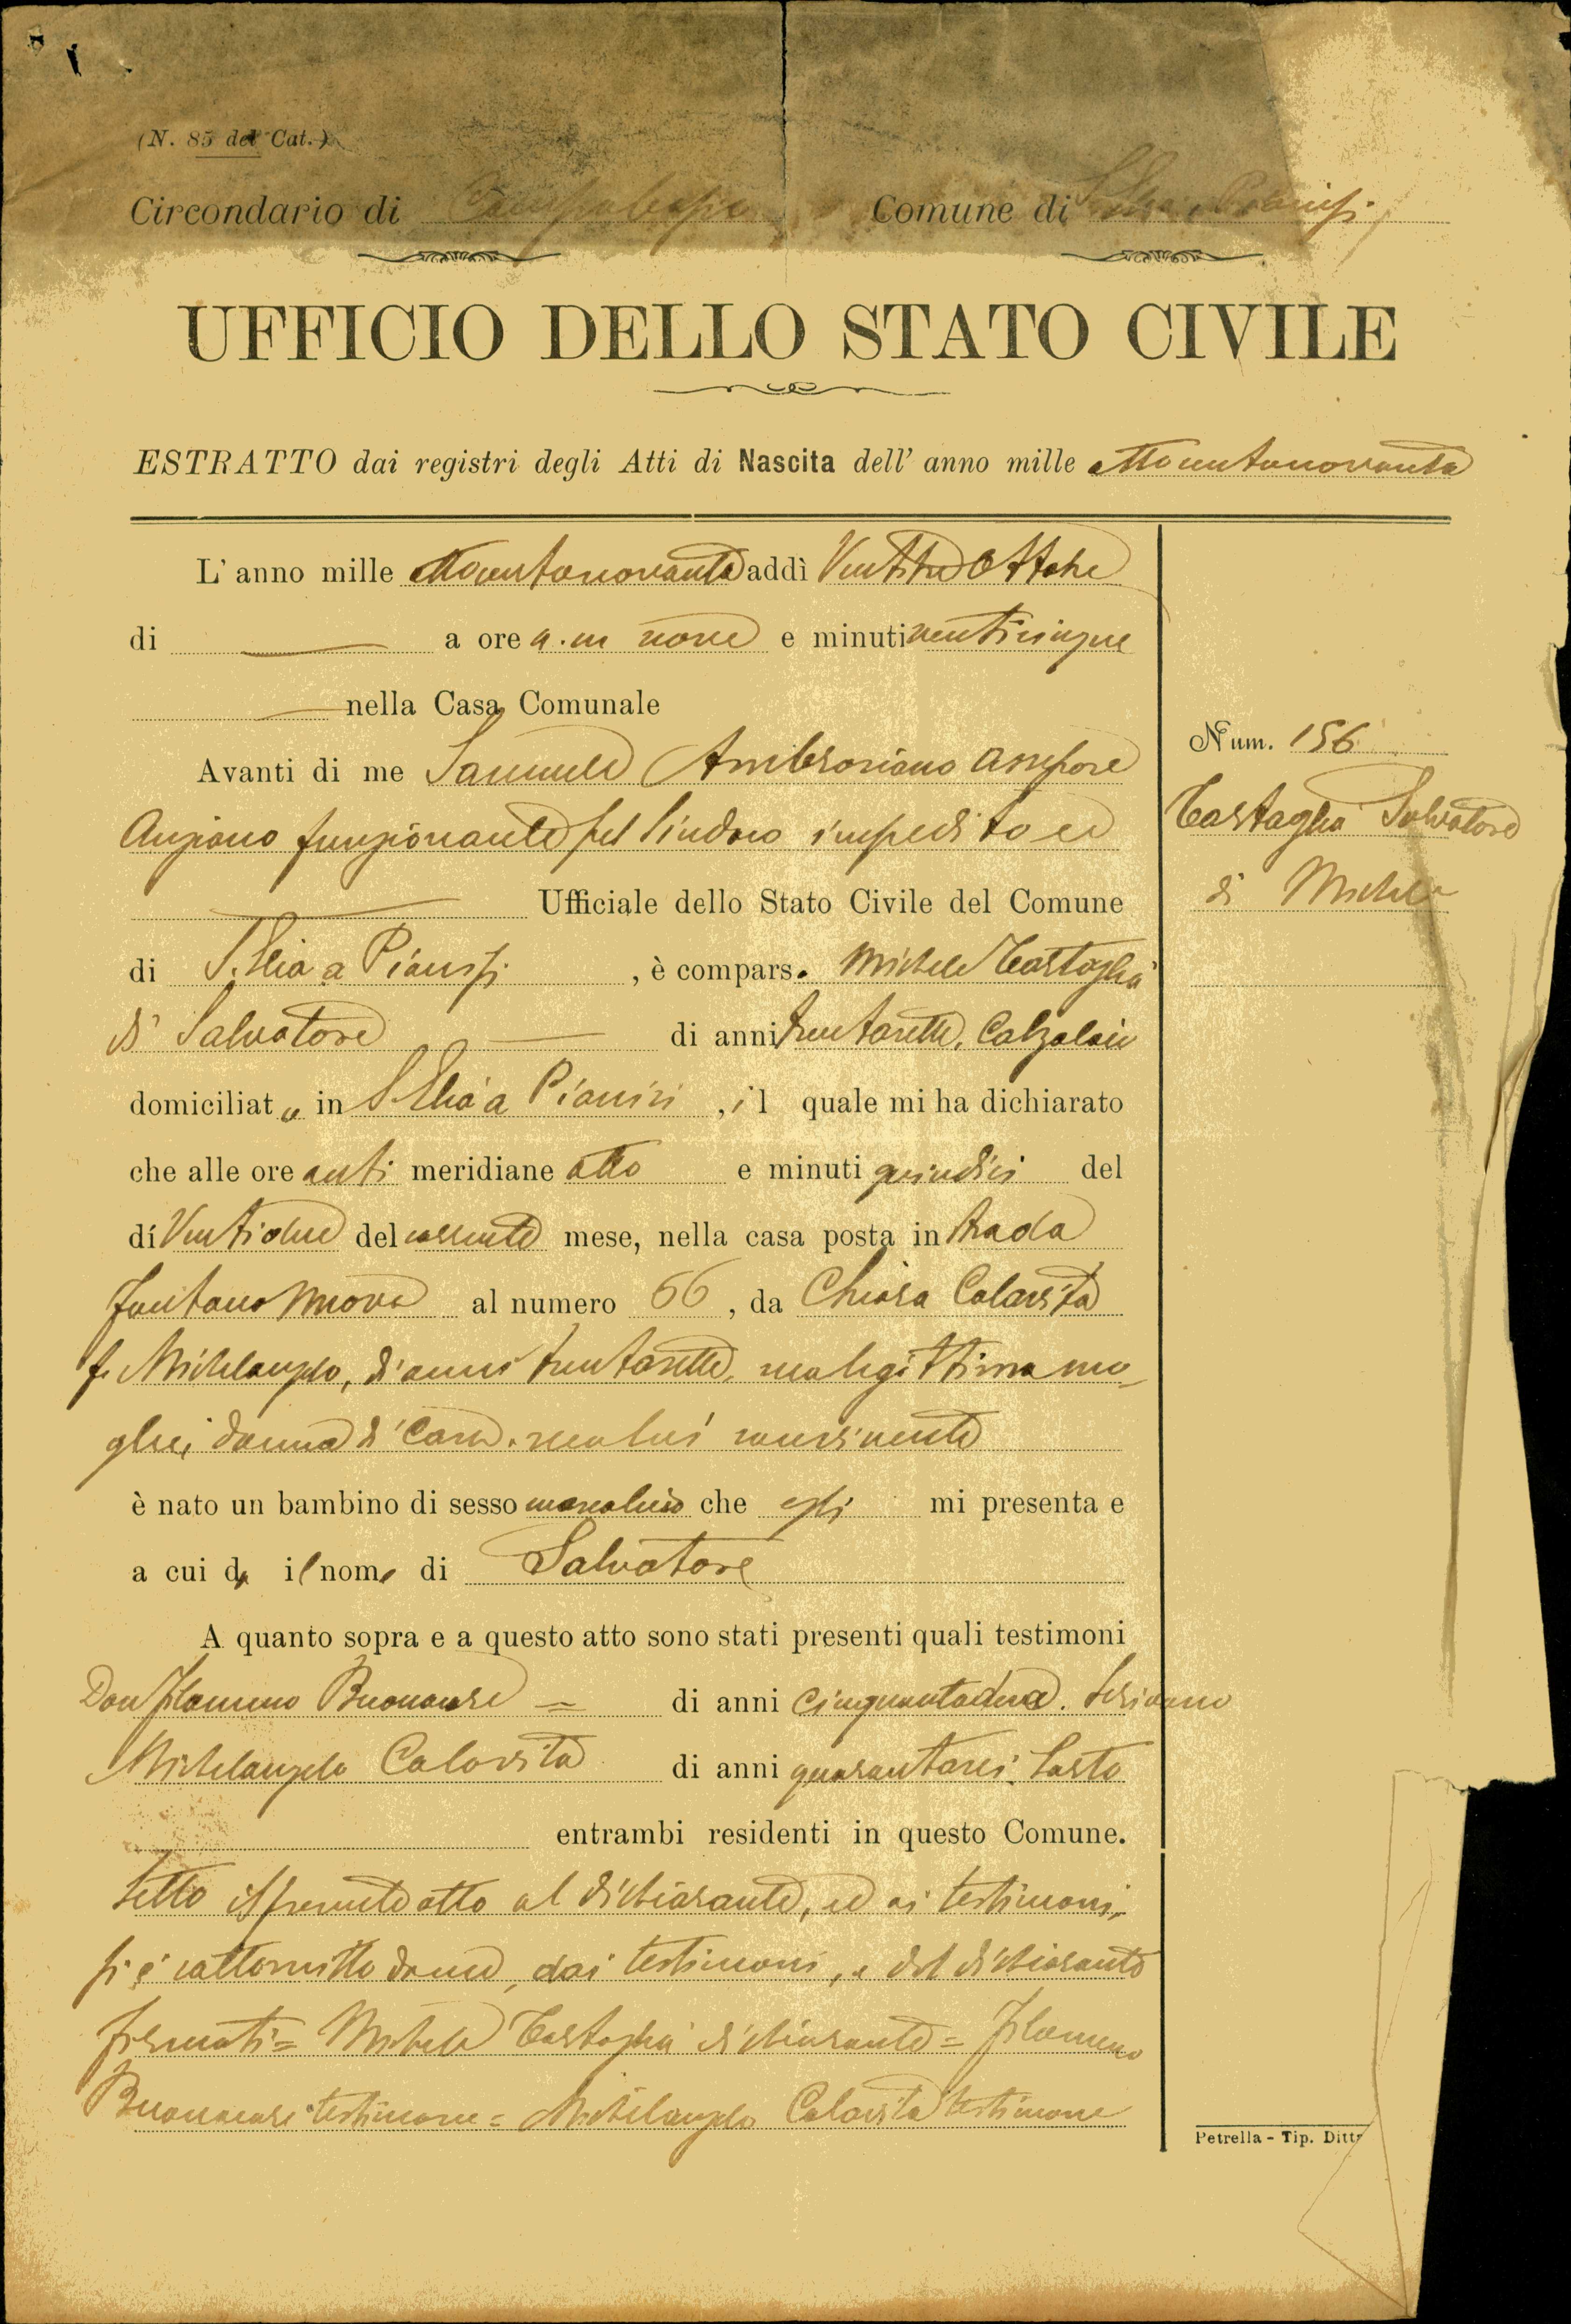 (N. 85 del Cat.)
Circondario di Campobasso Comune di S. Elia a Pianisi
UFFICIO DELLO STATO CIVILE
ESTRATTO dai registri degli Atti di Nascita dell' anno mille ottocentonovanta
L' anno mille ottocentonovanta addì Ventitre Ottobre
di a ore a.m nove e minuti venticinque
nella Casa Comunale
Avanti di me Samuele Ambrosiano Assessore
Anziano funzionante pel Sindaco impedito ed
Ufficiale dello Stato Civile del Comune
di S. Elia a Pianisi, è compars. Michele
di Salvatore di anni trentasette, Calzolaio
domiciliato in S Elia a Pianisi, il quale mi ha dichiarato
che alle ore anti meridiane otto e minuti quindici del
dí Ventidue del corrente mese, nella casa posta in strada
Fontana Nuova al numero 56, da Chiara Colavita
f. Michelangelo, di anni trentasette, sua legittima mo-
glie, donna di Casa, seco lui convivente
è nato un bambino di sesso mascolino che egli mi presenta e
a cui dà il nome di Salvatore
A quanto sopra e a questo atto sono stati presenti quali testimoni
Don di anni cinquantadue, Scrivano
Michelangelo Colavita di anni quarantasei, Sarto
entrambi residenti in questo Comune.
Letto il presente atto al dichiarante, ed ai testimoni,
si è sottoscritto da me, dai testimoni, e dal dichiarante
firmati = Michele dichiarante =
testimone = Michelangelo Colavita testimone
Num. 156
Salvatore
di Michele
Petrella - Tip. Ditta